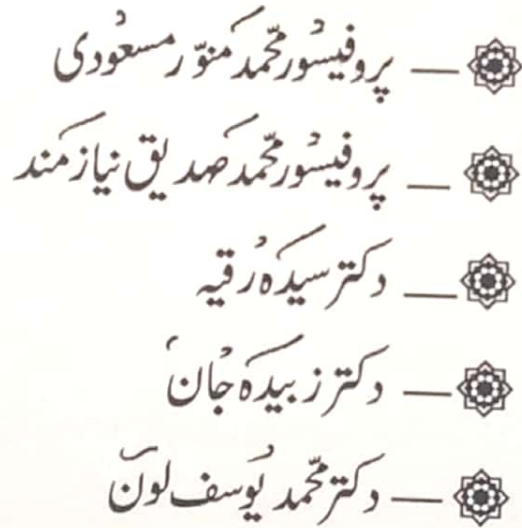 — پروفیسور محمد منوّر مسعودی
— پروفیسور محمد صدیق نیازمند
— دکتر سیده رقیه
— دکتر زبیده جان
— دکتر محمد یوسف لون